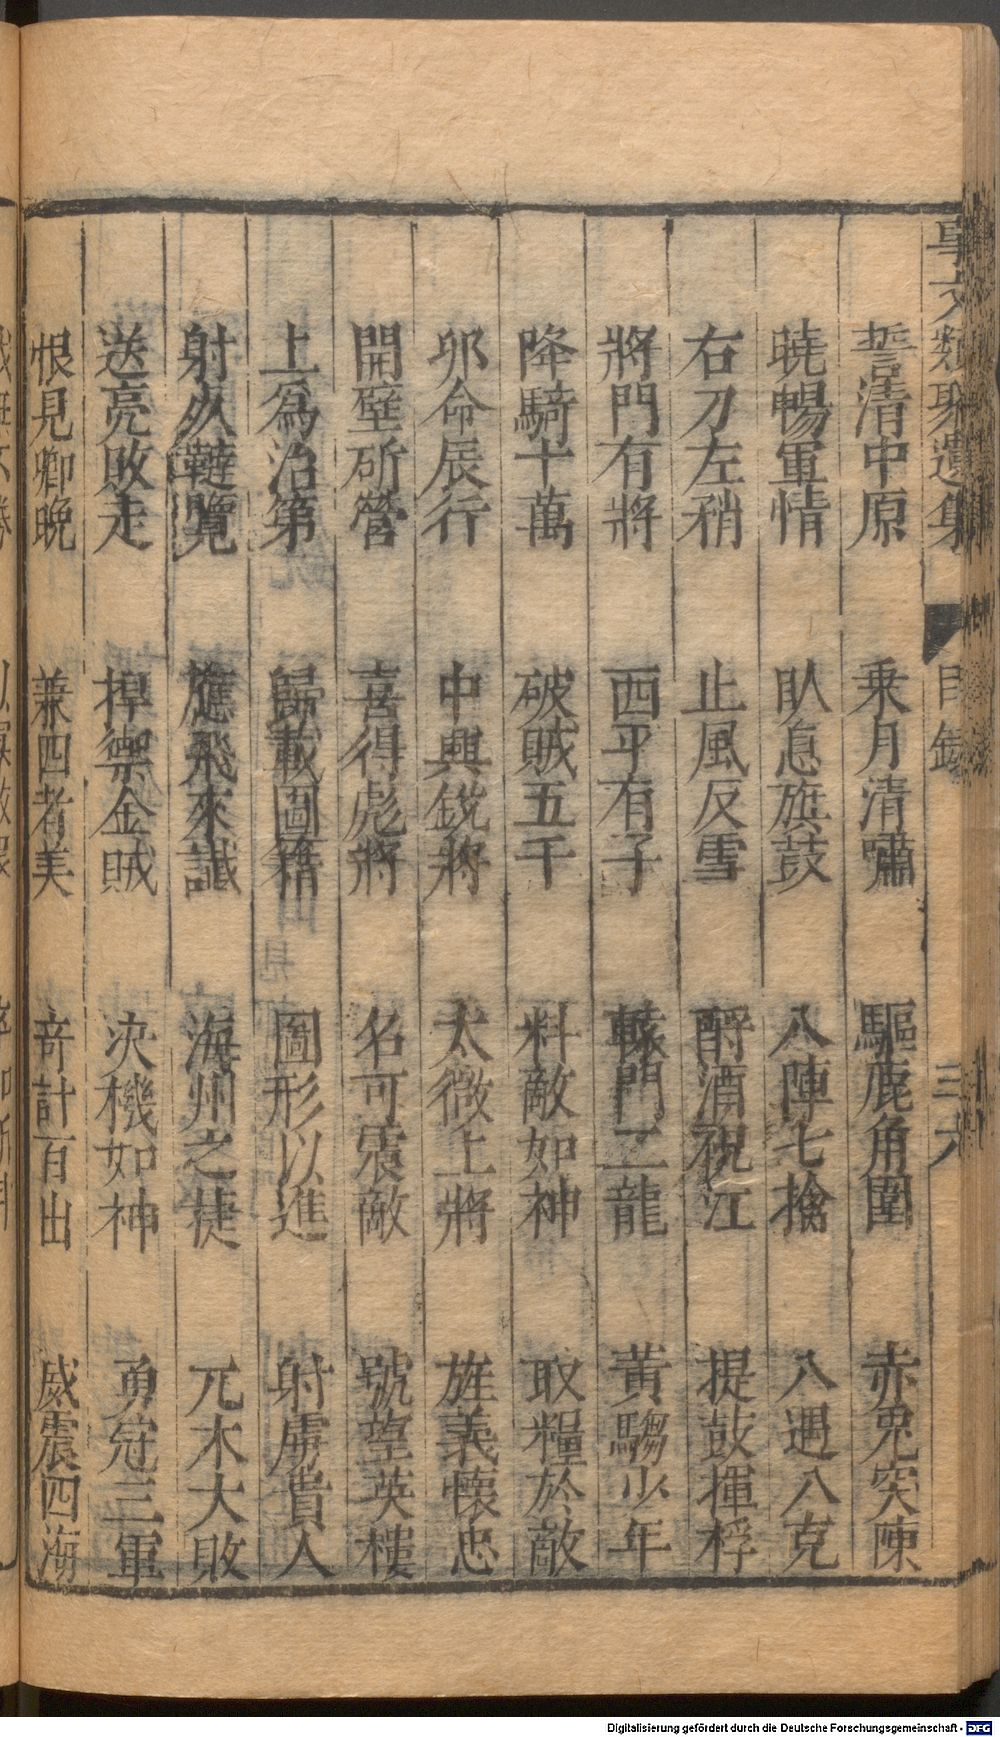 事文類聚遺集 目錄 三六
誓清中原 乘月清嘯 驅鹿角圍 赤兎突陳
曉暢軍情 臥息旗鼓 八陣七擒 八遇八克
右刀左矟 止風反雪 酹酒祝江 提鼓揮桴
將門有將 西平有子 轅門二龍 黃驄少年
降騎十萬 破賊五千 料敵如神 取糧於敵
卯命辰行 中興銳將 太微上將 旌義懷忠
開壁斫營 喜得彪將 名可震敵 號望英樓
上爲治第 歸載圖籍 圖形以進 射虜貴人
射殺韃覽 鷹飛來讖 海州之捷 兀朮大敗
送亮敗走 捍禦金賊 决機如神 勇冠三軍
恨見卿晚 兼四者美 竒計百出 威震四海
Digitalisierung gefördert durch die Deutsche Forschungsgemeinschaft - DFG